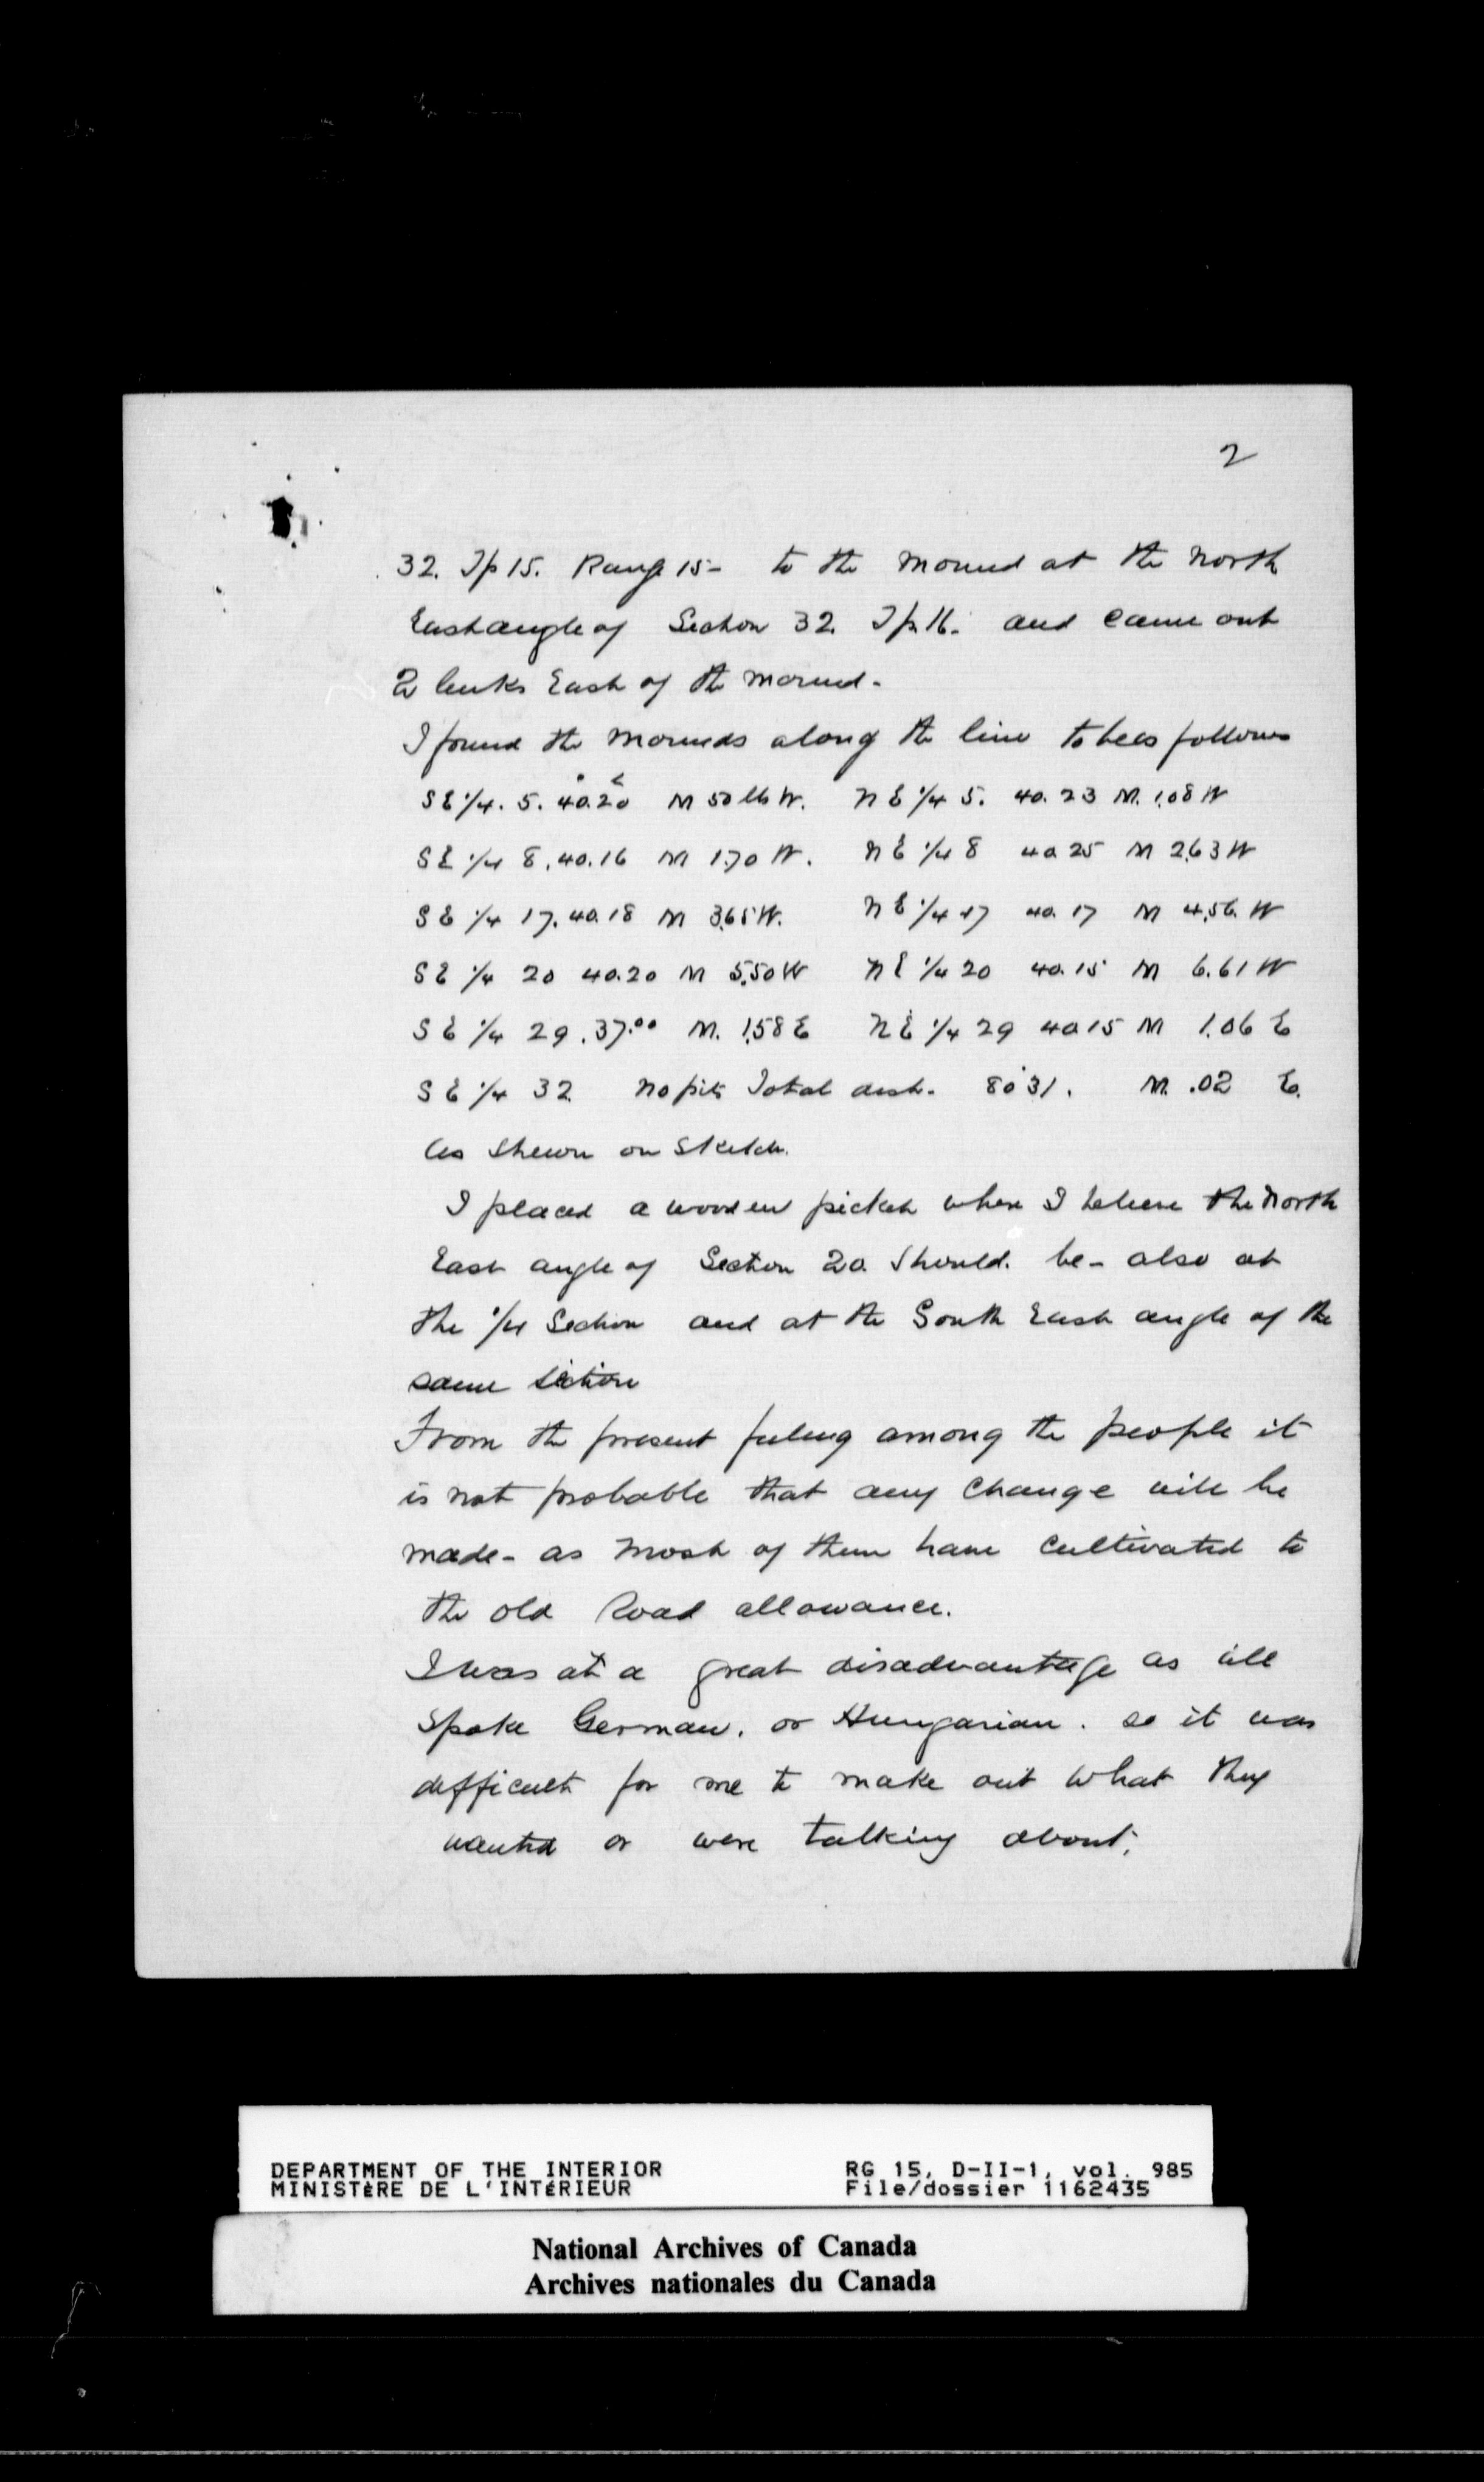 2
32. Tp 15. Range 15 - to the Mound at the North
East angle of Section 32. Tp. 16. and came out
2 links East of the mound -
I found the Mounds along the line to be as follows
S E 1/4. 5. 40.20 M 50 lks W. N E 1/4 5. 40.23 M. 1.08 W
S E 1/4 8. 40.16 M 1.70 W. N E 1/4 8 40 25 M 2.63 W
S E 1/4 17. 40.18 M 3.65 W. N E 1/4 17 40.17 M 4.56. W
S E 1/4 20 40.20 M 5.50 W N E 1/4 20 40.15 M 6.61 W
S E 1/4 29. 37.00 M. 1.58 E N E 1/4 29 40 15 M 1.06 E
S E 1/4 32 No pits Total dist. 80 31. M. .02 E.
As shewn on Sketch.
I placed a wooden picket where I believe the North
East angle of Section 20 should. be - also at
the 1/4 Section and at the South East angle of the
same section
From the present feeling among the people it
is not probable that any change will be
made - as most of them have cultivated to
the old Road allowance.
I was at a great disadvantage as all
spoke German. or Hungarian. so it was
difficult for me to make out what they
wanted or were talking about.
DEPARTMENT OF THE INTERIOR RG 15, D-II-1, vol. 985
MINISTÈRE DE L'INTÉRIEUR File/dossier 1162435
National Archives of Canada
Archives nationales du Canada